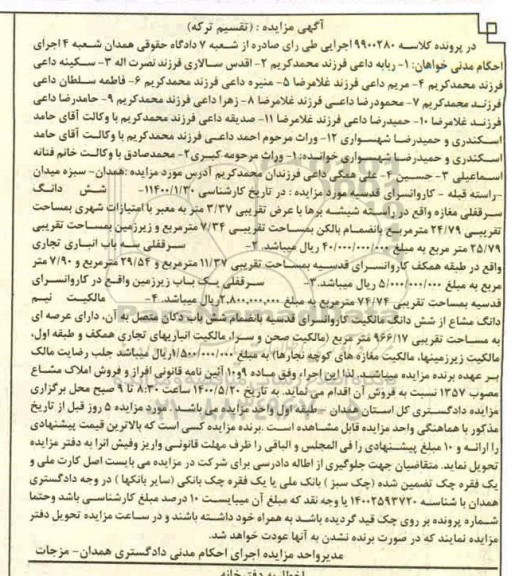 آگهی مزایده : (تقسیم ترکه)
در پرونده کلاسه ۹۹۰۰۲۸۰ اجرایی طی رای صادره از شعبه ۷ دادگاه حقوقی همدان شعبه ۴ اجرای
احکام مدنی خواهان: ۱- ربابه داعی فرزند محمدکریم ۲- اقدس سالاری فرزند نصرت اله ۳- سکینه داعی
فرزند محمدکریم ۴- مریم داعی فرزند غلامرضا ۵- منیره داعی فرزند محمدکریم ۶- فاطمه سلطان داعی
فرزند محمدکریم ۷- محمودرضا داعی فرزند غلامرضا ۸- زهرا داعی فرزند محمدکریم ۹- حامدرضا داعی
فرزند غلامرضا ۱۰- حمیدرضا داعی فرزند غلامرضا ۱۱- صدیقه داعی فرزند محمدکریم با وکالت آقای حامد
اسکندری و حمیدرضا شهسواری ۱۲- وراث مرحوم احمد داعی فرزند محمدکریم با وکالت آقای حامد
اسکندری و حمیدرضا شهسواری خوانده: ۱- وراث مرحومه کبری ۲- محمدصادق با وکالت خانم فتانه
اسماعیلی ۳- حسین ۴- علی همگی داعی فرزندان محمدکریم آدرس مورد مزایده :همدان- سبزه میدان
-راسته قبله - کاروانسرای قدسیه مورد مزایده : در تاریخ کارشناسی ۱۴۰۰/۱/۳۰-۱ شش دانگ
سرقفلی مغازه واقع در راسته شیشه برها با عرض تقریبی ۳/۳۷ متر به معبر با امتیازات شهری بمساحت
تقریبی ۲۴/۷۹ مترمربع بانضمام بالکن بمساحت تقریبی ۷/۳۴ مترمربع و زیرزمین بمساحت تقریبی
۲۵/۷۹ متر مربع به مبلغ ۴۰/۰۰۰/۰۰۰/۰۰۰ ریال میباشد. ۲- سرقفلی سه باب انباری تجاری
واقع در طبقه همکف کاروانسرای قدسیه بمساحت تقریبی ۱۱/۳۷ مترمربع و ۲۹/۵۴ مترمربع و ۷/۹۰ متر
مربع به مبلغ ۵/۰۰۰/۰۰۰/۰۰۰ ریال میباشد.۳- سرقفلی یک باب زیرزمین واقع در کاروانسرای
قدسیه بمساحت تقریبی ۷۴/۷۴ مترمربع به مبلغ ۲,۸۰۰,۰۰۰,۰۰۰ ریال میباشد. ۴- مالکیت نیم
دانگ مشاع از شش دانگ مالکیت کاروانسرای قدسیه بانضمام شش باب دکان متصل به آن، دارای عرصه ای
به مساحت تقریبی ۹۶۶/۱۷ متر مربع (مالکیت صحن و سرا، مالکیت انباریهای تجاری همکف و طبقه اول،
مالکیت زیرزمینها، مالکیت مغازه های کوچه نجارها) به مبلغ ۱/۵۰۰/۰۰۰/۰۰۰ ریال میباشد جلب رضایت مالک
بر عهده برنده مزایده میباشد. لذا این اجراء وفق ماده ۹و۱۰ آئین نامه قانونی افراز و فروش املاک مشاع
مصوب ۱۳۵۷ نسبت به فروش آن اقدام می نماید. به تاریخ ۱۴۰۰/۵/۲۰ ساعت ۸:۳۰ تا ۹ صبح محل برگزاری
مزایده دادگستری کل استان همدان -طبقه اول واحد مزایده می باشد. مورد مزایده ۵ روز قبل از تاریخ
مذکور با هماهنگی واحد مزایده قابل مشاهده است .برنده مزایده کسی است که بالاترین قیمت پیشنهادی
را ارائه و ۱۰ مبلغ پیشنهادی را فی المجلس و الباقی را ظرف مهلت قانونی واریز وفیش انرا به دفتر مزایده
تحویل نماید. متقاضیان جهت جلوگیری از اطاله دادرسی برای شرکت در مزایده می بایست اصل کارت ملی و
یک فقره چک تضمین شده (چک سبز ) بانک ملی یا یک فقره چک بانکی (سایر بانکها ) در وجه دادگستری
همدان با شناسه ۱۴۰۰۲۵۹۳۷۲۰ یا وجه نقد که مبلغ آن میبایست ۱۰ درصد مبلغ کارشناسی باشد وحتما
شماره پرونده بر روی چک قید گردیده باشد به همراه خود داشته باشند و در ساعت مزایده تحویل دفتر
مزایده نمایند که در صورت برنده نشدن به آنها عودت خواهد شد.
مدیرواحد مزایده اجرای احکام مدنی دادگستری همدان- مزجات